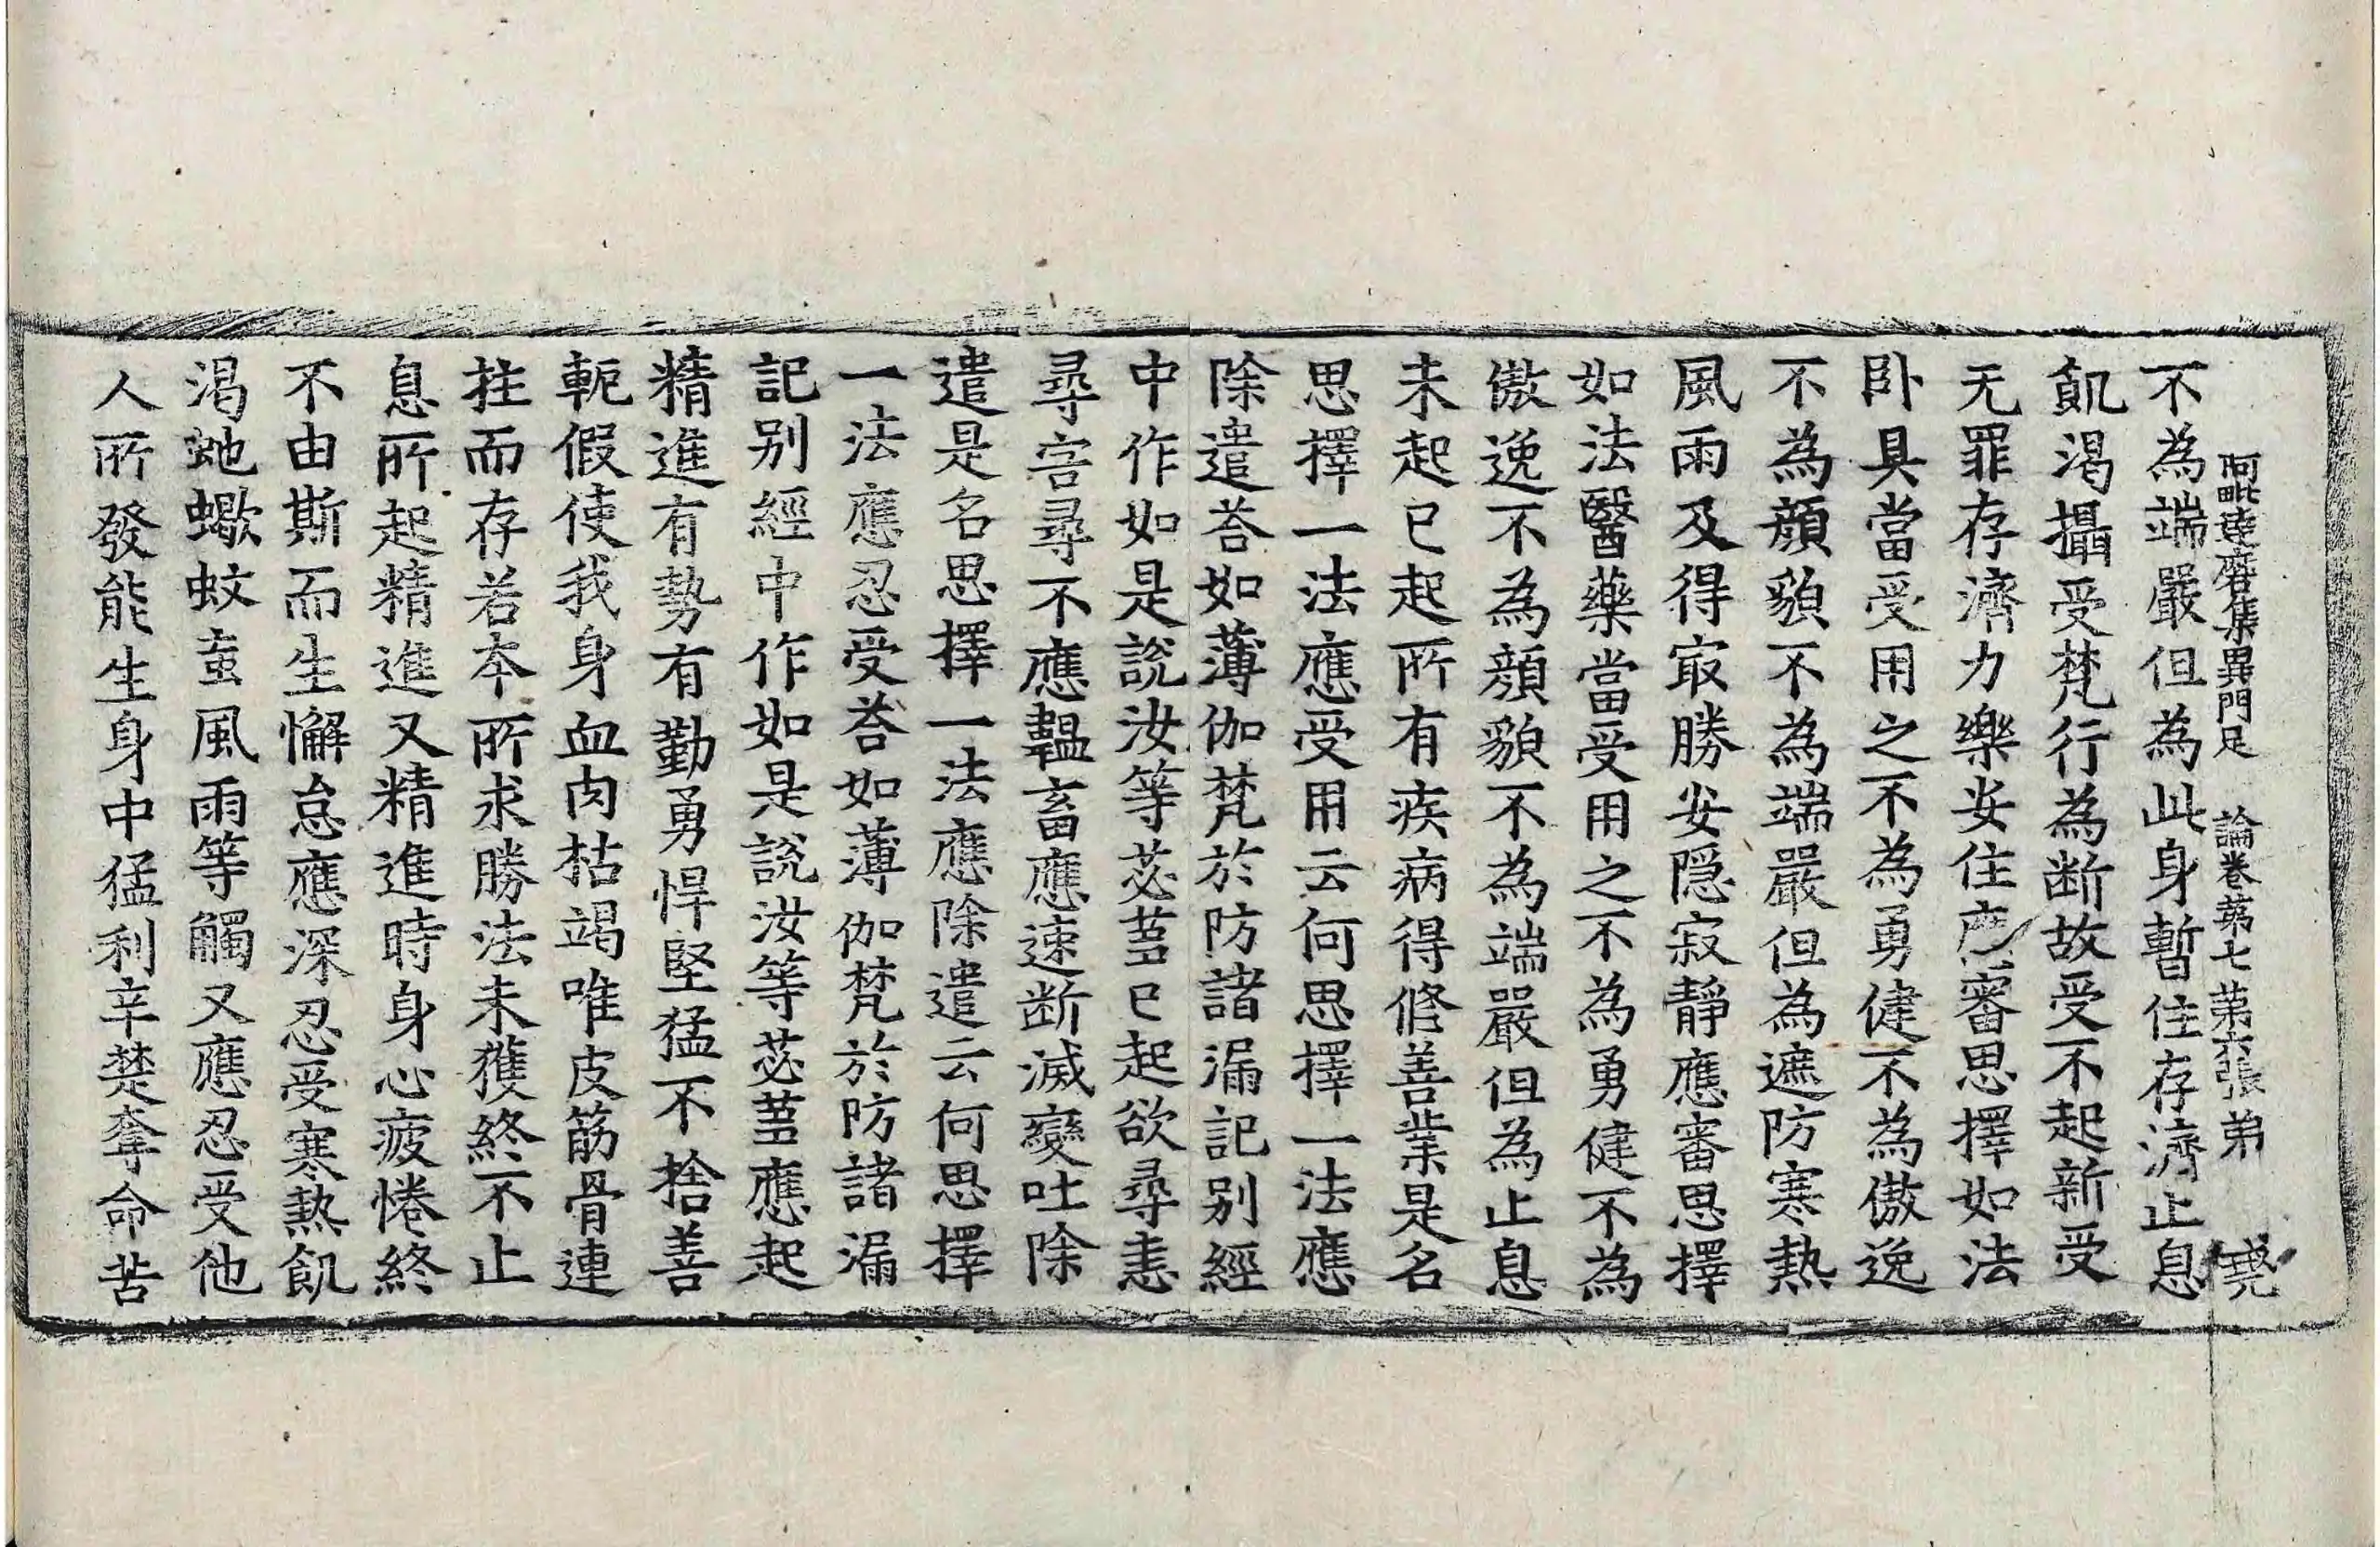 阿毗達磨集異門足　論卷第七　第六張　弟
不為端嚴但為此身暫住存濟止息
飢渴攝受梵行為断故受不起新受
无罪存濟力樂安住應審思擇如法
卧具當受用之不為勇健不為傲逸
不為顏貌不為端嚴但為遮防寒熱
風雨及得㝡勝安隱寂靜應審思擇
如法醫藥當受用之不為勇健不為
傲逸不為顏貌不為端嚴但為止息
未起已起所有疾病得修善業是名
思擇一法應受用云何思擇一法應
除遣荅如薄伽梵於防諸漏記别經
中作如是說汝等苾蒭已起欲尋恚
尋害尋不應韞畜應速断滅變吐除
遣是名思擇一法應除遣云何思擇
一法應忍受荅如薄伽梵於防諸漏
記别經中作如是說汝等苾蒭應起
精進有勢有勤勇悍堅猛不捨善
軛假使我身血肉枯竭唯皮筋骨連
拄而存若本所求勝法未獲終不止
息所起精進又精進時身心疲惓終
不由斯而生懈怠應深忍受寒熱飢
渴虵蠍蚊䖟風雨等觸又應忍受他
人所發能生身中猛利辛楚奪命苦